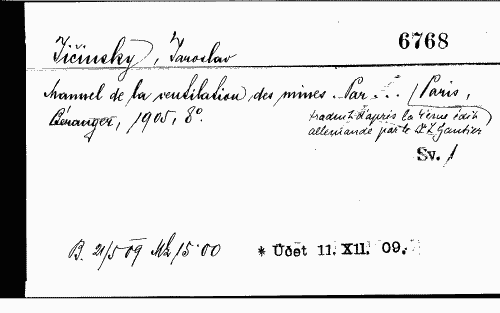 6768
Jičinsky, Jaroslav
Manuel de la ventilation des mines. Par ... / Paris,
Béranger, 1905, 8°.
traduit d'après la 4ème édit
allemande par le Dr L Gautier
Sv. /
B. 21/5 09 Mk 15·00
* Účet 11. XII. 09.